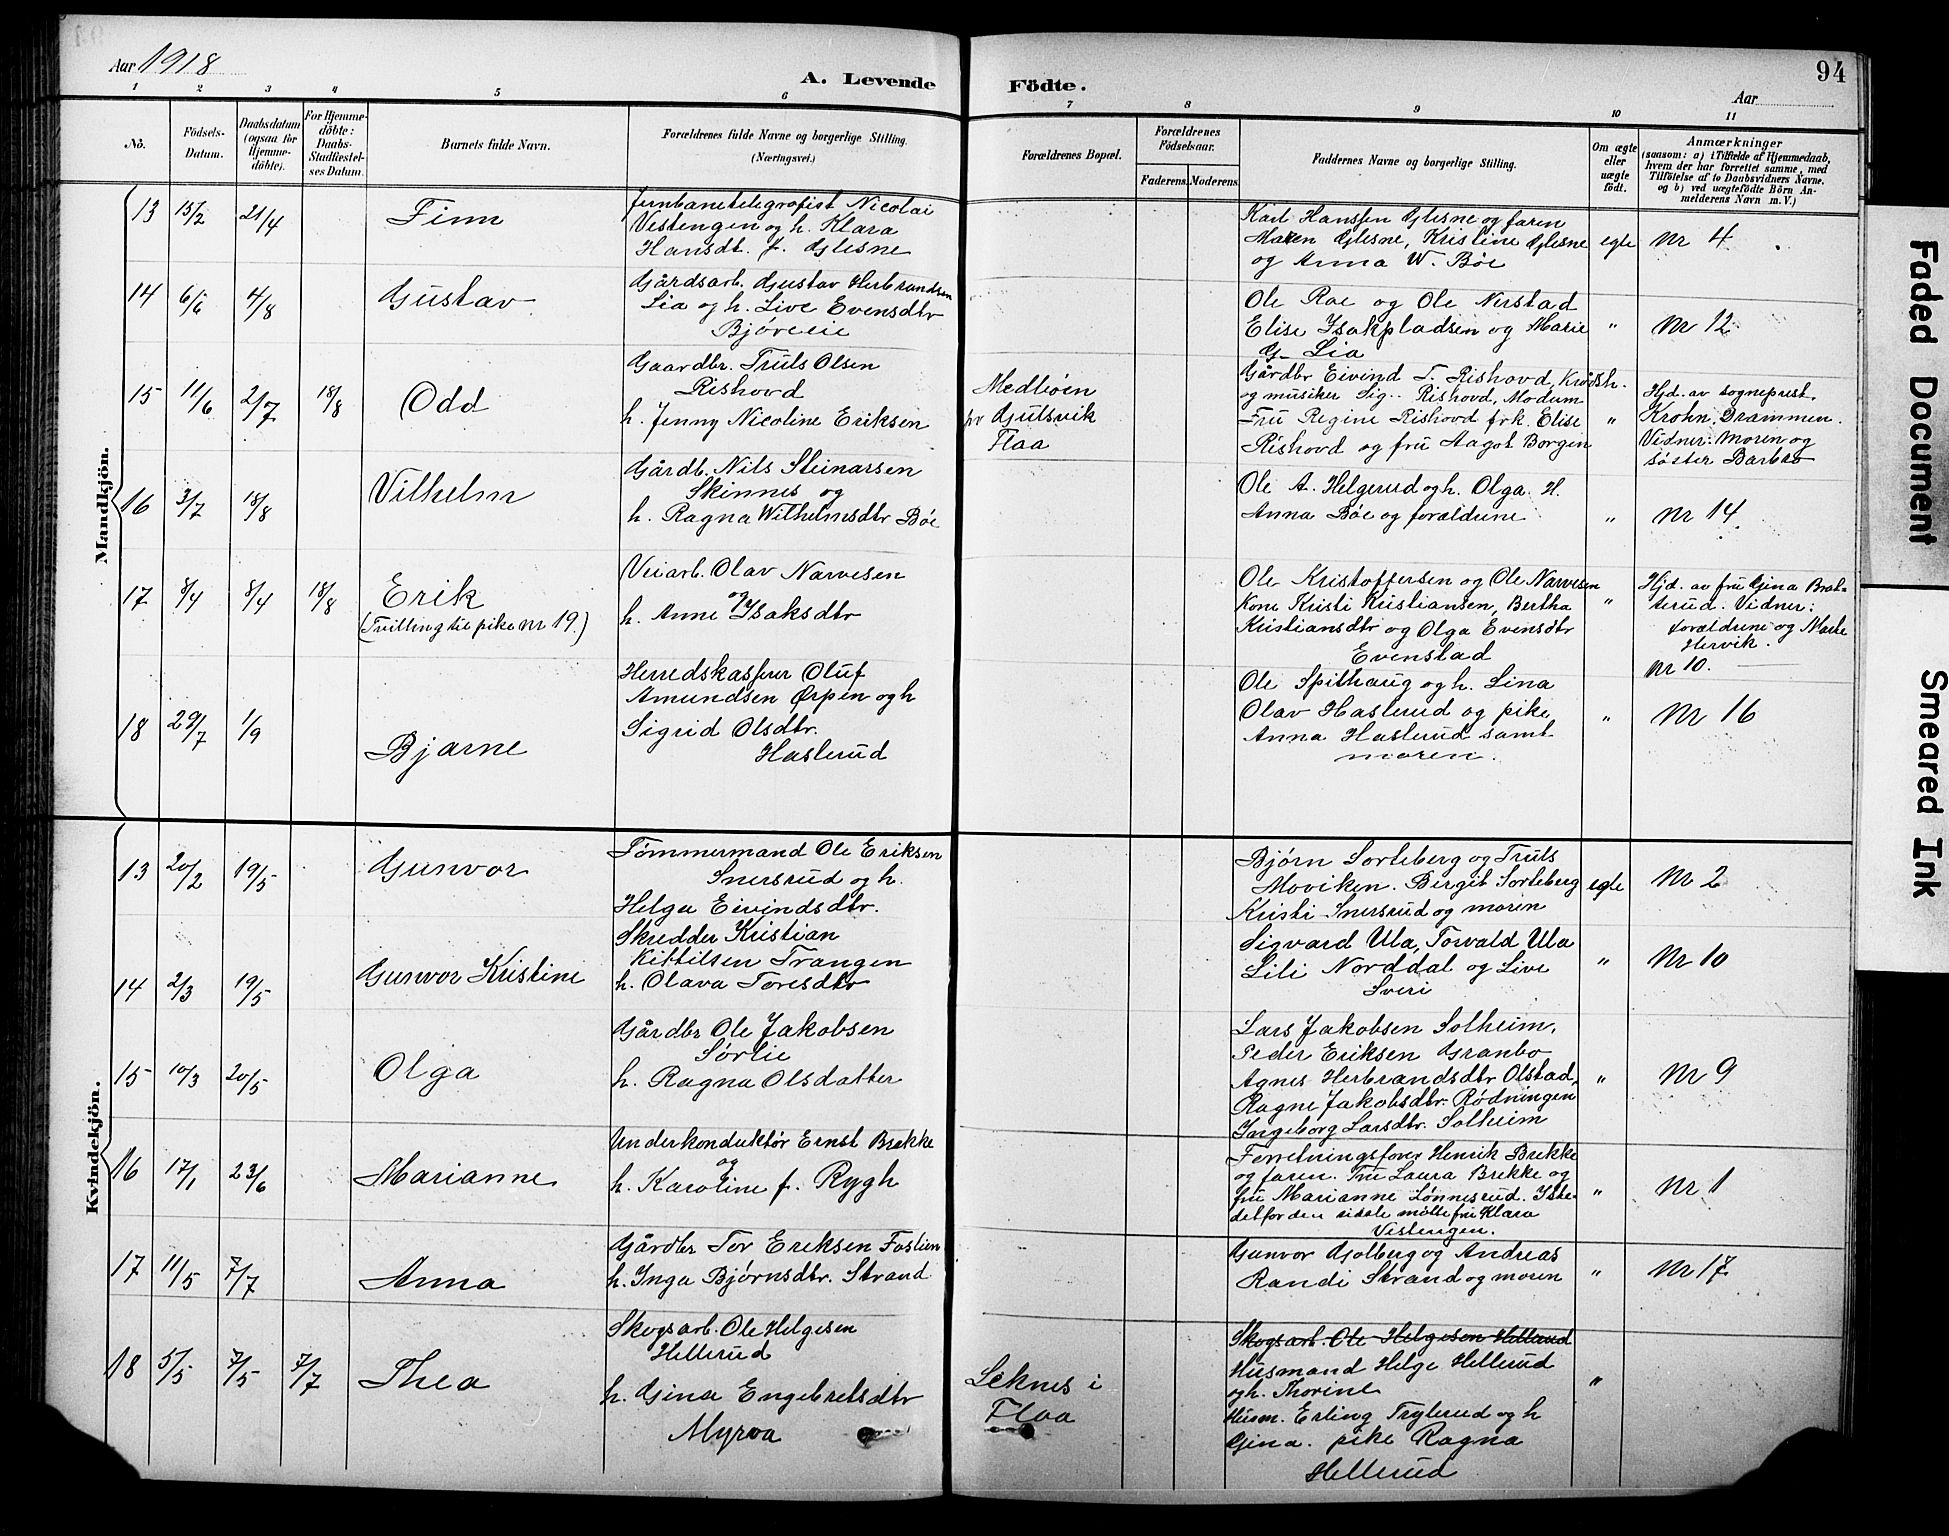 Aar 1918
A. Levende
Födte.
94
Aar
1 2 3 4 5 6 7 8 9 10 11
No.
Födsels-
Datum.
Daabsdatum
(ogsaa for
Hjemme-
döbte).
For Hjemme-
döbte:
Daabs-
Stadfæstel-
ses Datum.
Barnets fulde Navn.
Forældrenes fulde Navne og borgerlige Stilling.
(Næringsvei.)
Forældrenes Bopæl.
Forældrenes
Födselsaar.
Faderens. Moderens.
Faddernes Navne og borgerlige Stilling.
Om ægte
eller
uægte
födt.
Anmærkninger
(saasom: a) i Tilfælde af Hjemmedaab,
hvem der har forrettet samme, med
Tilföielse af to Daabsvidners Navne.
og b) ved uægtefödte Börn An-
melderens Navn m. V.)
Mandkjön.
13 15/2 21/4 Finn
Jernbanetelegrafist Nicolai
Vestengen og h. Klara
Hansdt. f. Glesne
Karl Hanssen Glesne og faren
Maren Glesne, Kristine Glesne
og Anna W. Bøe
egte
Nr 4
14 6/6 4/8 Gustav
Gårdsarb. Gustav Herbrandsen
Lia og h. Live Evensdtr
Bjøreeie
Ole Roe og Ole Nerstad
Elise Isakpladsen og Marie
G. Lia
"
Nr 12
15 11/6 2/7 18/8 Odd
Gaardbr. Truls Olsen
Rishovd
h. Jenny Nicoline Eriksen
Medbøen
pr Gulsvik
Flaa
Gårdbr Eivind T. Rishovd, Krødsh.
og musiker Sig.. Rishovd, Modum
Fru Regine Rishovd frk. Elise
Rishovd og fru Aagot Borgen
"
Hjd. av sogneprest.
Krohn, Drammen.
Vidner: Moren og
søster Barbro
16 3/7 18/8 Vilhelm
Gårdb. Nils Steinarsen
Skinnes og
h. Ragna Wilhelmsdtr Bøe
Ole A. Helgerud og h. Olga H.
Anna Bøe og forældrene
"
Nr 14
17 8/4 8/4 18/8 Erik
(Tvilling til pike nr 19.)
Veiarb. Olav Narvesen
og
h. Anne Isaksdtr
Ole Kristoffersen og Ole Narvesen
Kone Kristi Kristiansen, Bertha
Kristiansdtr og Olga Evensdtr
Evenstad
"
Hjd. av fru Gina Brat-
terud. Vidner:
forældrene og Marie
Hervik.
Nr 10.
18 29/7 1/9 Bjarne
Herredskasserer Oluf
Amundsen Ørpen og h
Sigrid Olsdtr.
Haslerud
Ole Spithaug og h. Lina
Olav Haslerud og pike
Anna Haslerud samt
moren.
"
Nr 16
Kvindekjön.
13 20/2 19/5 Gunvor
Tømmermand Ole Eriksen
Snersrud og h.
Helga Eivindsdtr.
Bjørn Sorteberg og Truls
Moviken. Bergit Sorteberg
Kristi Snersrud og moren
egte
Nr 2
14 2/3 19/5 Gunvor Kristine
Skredder Kristian
Kittilsen Trangen
h. Olava Toresdtr
Sigvard Ula, Torvald Ula
Lili Norddal og Live
Sveri
"
Nr 10
15 10/3 20/5 Olga
Gårdbr Ole Jakobsen
Sørlie
h. Ragna Olsdatter
Lars Jakobsen Solheim,
Peder Eriksen Granbo
Agnes Herbrandsdtr Olstad,
Ragne Jakobsdtr. Rødningen
Ingeborg Larsdtr. Solheim
"
Nr 9
16 17/1 23/6 Marianne
Underkonduktør Ernst Brekke
og
h. Karoline f. Rygh
Forretningsfører Henrik Brekke
og faren. Fru Laura Brekke og
fru Marianne Lønnesrud. Iste-
detfor den sidste møtte fru Klara
Vestengen.
"
Nr 1
17 11/5 7/7 Anna
Gårdbr Tov Eriksen Foslien
h. Inga Bjørnsdtr. Strand
Gunvor Golberg og Andreas
Randi Strand og moren
"
Nr 17
18 5/5 7/5 7/7 Thea
Skogsarb. Ole Helgesen
Hellerud
h. Gina Engebretsdtr
Myrva
Leknes i
Flaa
Skogsarb. Ole Helgesen Hellerud
Husmand Helge Hellerud
og h. Thorine
Husm. Erling Trylerud og h
Gina. pike Ragna
Hellerud
"
Faded Document
Smeared Ink